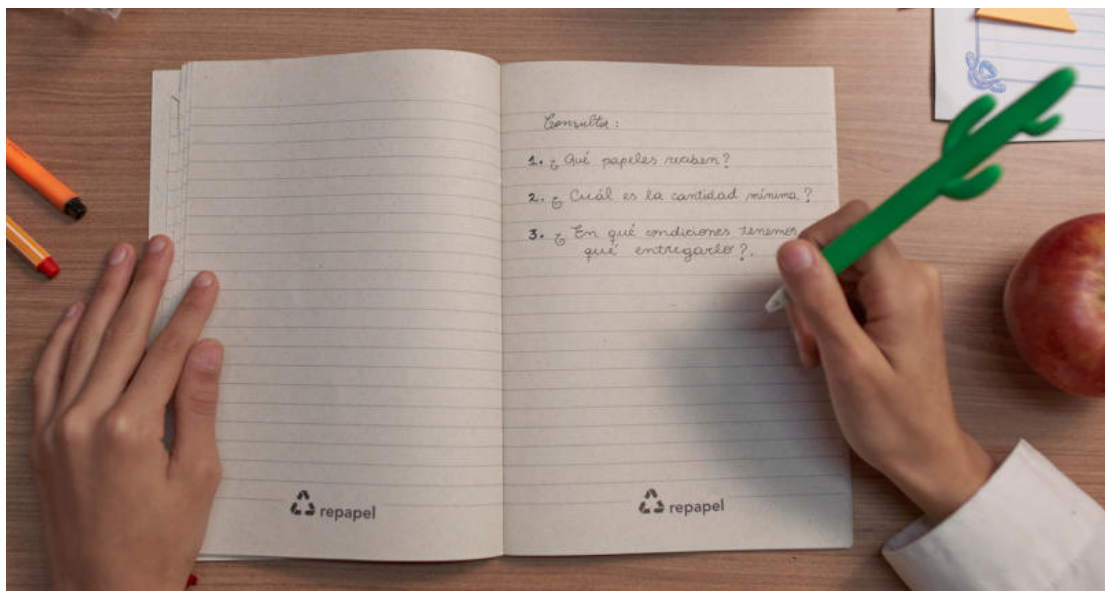 Consulta :
1. ¿ Qué papeles reciben?
2. ¿ Cuál es la cantidad mínima ?
3. ¿ En qué condiciones tenemos
qué entregarlo?.
repapel
repapel